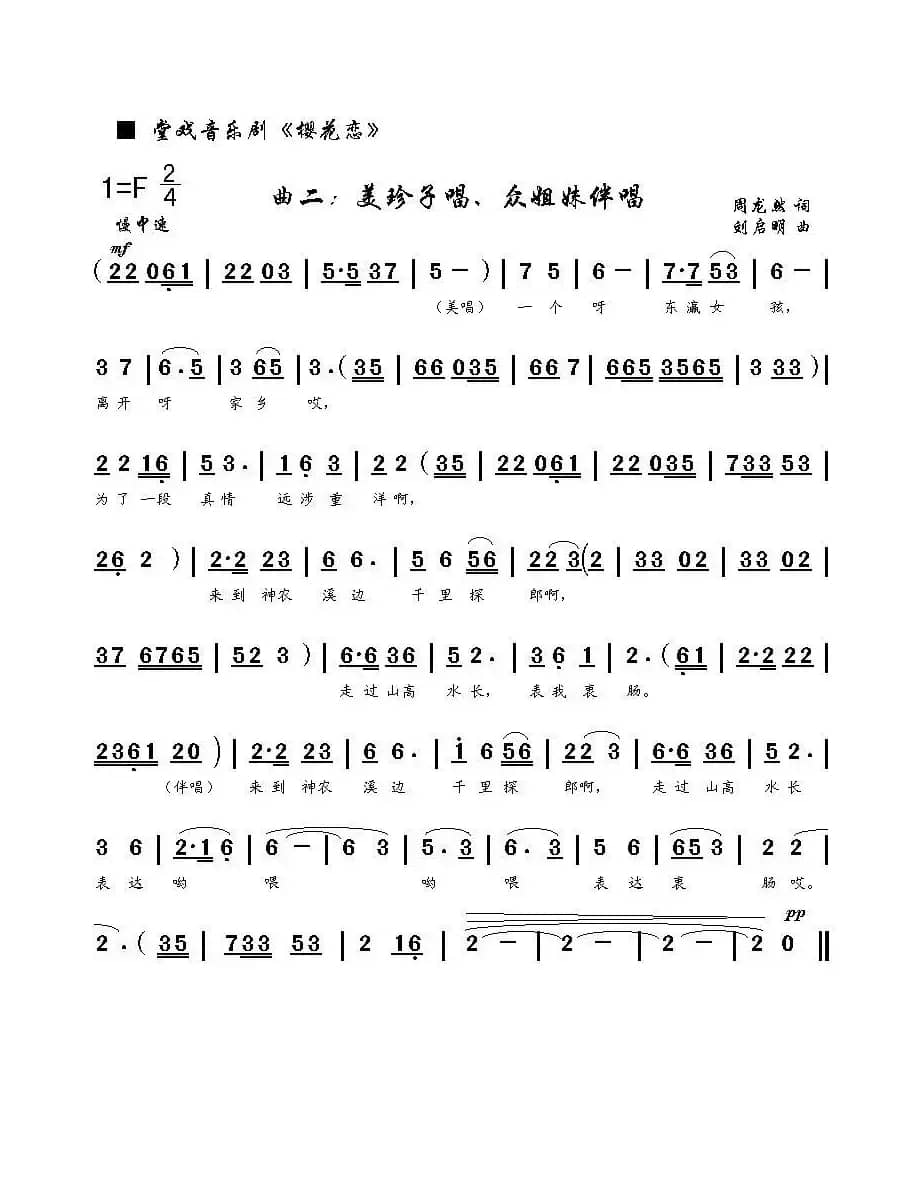 ■ 堂戏音乐剧《樱花恋》
1=F 2/4
曲二：美珍子唱、众姐妹伴唱
周龙然 词
慢中速
刘启明 曲
mf
( 22 061 | 22 03 | 5·5 37 | 5 – ) | 7 5 | 6 – | 7·7 53 | 6 – |
（美唱） 一 个 呀 东 瀛 女 孩，
3 7 | 6. 5 | 3 65 | 3. ( 35 | 66 035 | 66 7 | 665 3565 | 3 33 ) |
离 开 呀 家 乡 哎，
2 2 16 | 5 3. | 1 6 3 | 2 2 ( 35 | 22 061 | 22 035 | 733 53 |
为 了 一 段 真 情 远 涉 重 洋 啊，
26 2 ) | 2·2 23 | 6 6. | 5 6 56 | 22 3 ( 2 | 33 02 | 33 02 |
来 到 神农 溪 边 千 里 探 郎 啊，
37 6765 | 52 3 ) | 6·6 36 | 5 2. | 3 6 1 | 2. ( 61 | 2·2 22 |
走 过 山高 水 长， 表 我 衷 肠。
2361 20 ) | 2·2 23 | 6 6. | 1 6 56 | 22 3 | 6·6 36 | 5 2. |
（伴唱） 来 到 神农 溪 边 千 里 探 郎 啊， 走 过 山高 水 长
3 6 | 2·1 6 | 6 – | 6 3 | 5. 3 | 6. 3 | 5 6 | 65 3 | 2 2 |
表 达 呦 喂 呦 喂 表 达 衷 肠 哎。
pp
2 . ( 35 | 733 53 | 2 16 | 2 – | 2 – | 2 – | 2 0 ‖